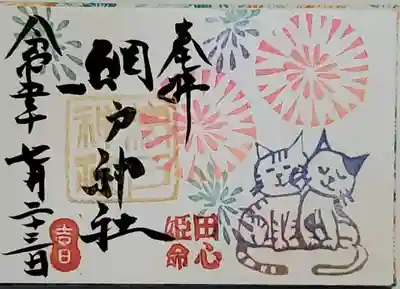 奉拝
田心
姫命
網戸神社
令和五年七月二十三日
吉日